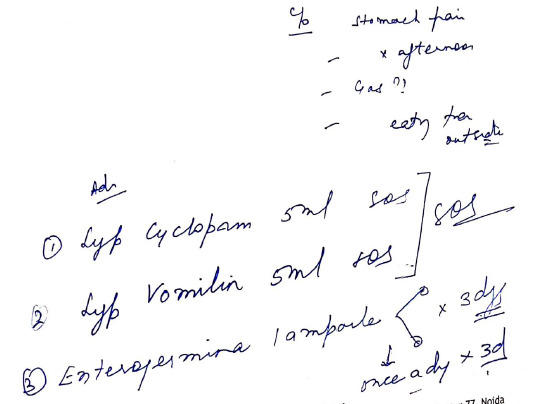 c/o stomach pain
- x afternoon
- Gas ??
- eatg from outside
Adv
① Syp Cyclopam 5ml sos
② Syp Vomilin 5ml sos
] sos
③ Enterogermina 1 ampoule x 3dys
↓
once a dy x 3d
77, Noida